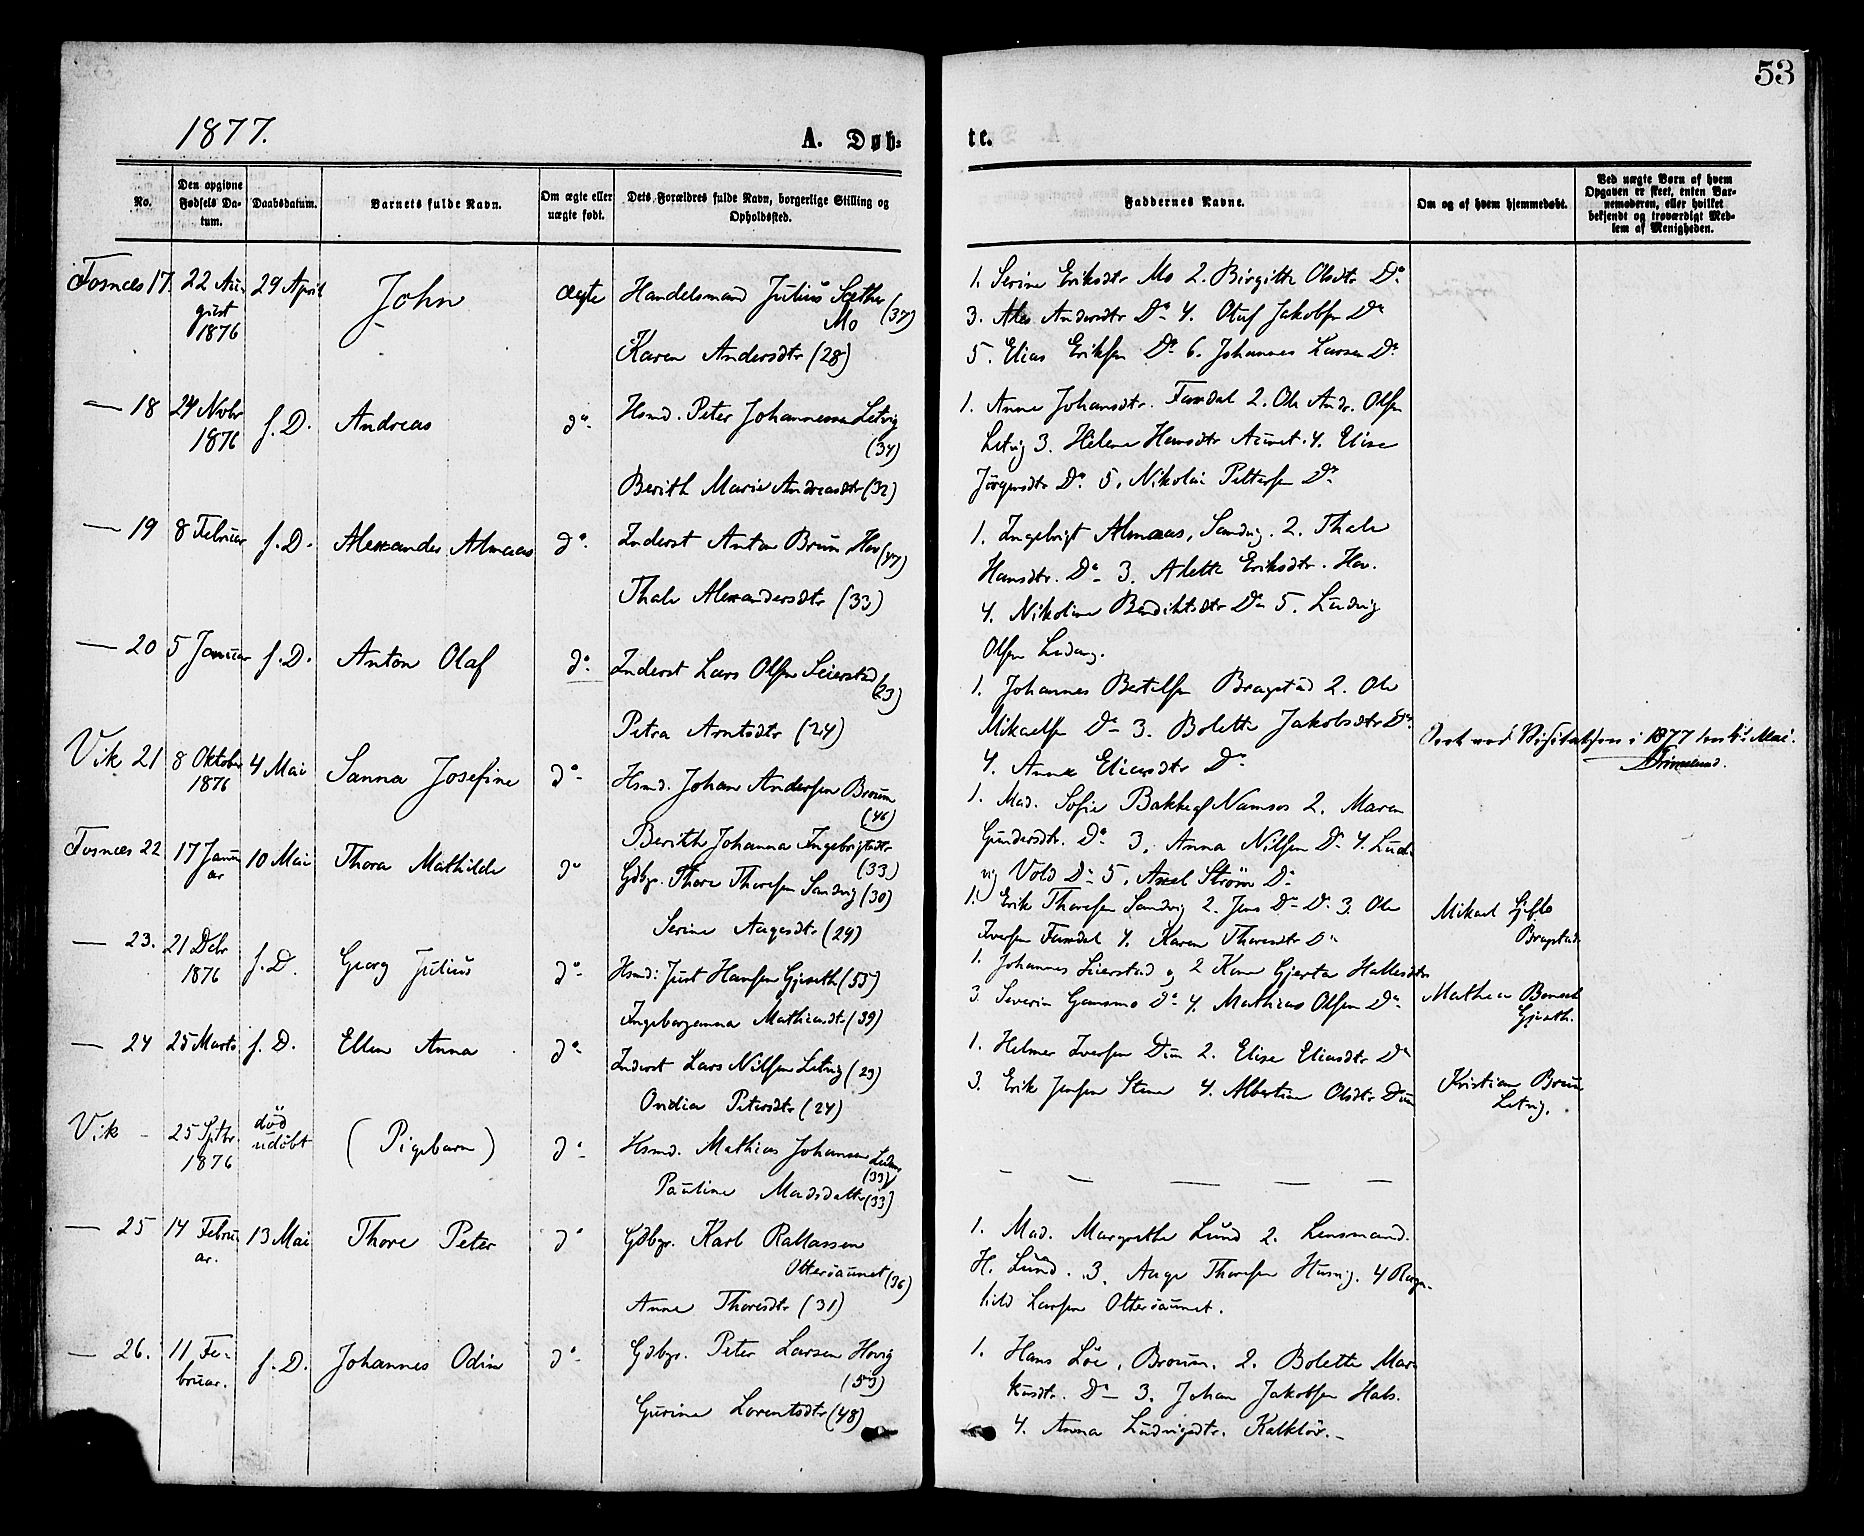 53
1877.
A. Døb=
te.
No.
Den opgivne Fødsels Da-tum.
Daabsdatum.
Barnets fulde Navn.
Om ægte eller uægte født.
Dets Forældres fulde Navn, borgerlige Stilling og Opholdssted.
Faddernes Navne.
Om og af hvem hjemmedøbt.
Ved uægte Børn af hvem Opgaven er skeet, enten Bar-nemoderen, eller hvilket bekjendt og troværdigt Med-lem af Menigheden.
Fosnæs 17.
22 Au
gust
1876
29 April
John
Ægte
Handelsmand Julius Sæther
Mo (37)
Karen Andersdtr (28)
1. Serine Eriksdtr Mo 2. Birgitte Olsdtr Do
3. Andersdtr Do 4. Oluf Jakobsen Do
5. Elias Eriksen Do 6. Johannes Larsen Do
— 18
24 Novbr
1876
f. D.
Andreas
do
Hsmd. Peter Johannessen Letvig
(34)
Berith Marie Andreasdtr (32)
1. Anne Johansdtr. Faxdal 2. Ole Andr. Olsen
Letvig 3. Helene Hansdtr Aunet. 4. Elise
Jörgensdtr Do 5. Nikolai Pettersen Do
— 19
8 Februar
f. D.
Alexander Almaas
do
Inderst Anton Brun Hov (47)
Thale Alexandersdtr (33)
1. Ingebrigt Almaas, Sandvig. 2. Thale
Hansdtr. Do 3. Alette Eriksdtr. Hov.
4. Nikoline Bendiktsdtr Do 5. Ludvig
Olsen
— 20
5 Januar
f. D.
Anton Olaf
do
Inderst Lars Olsen Seierstad
(23)
Petra Arntsdtr (24)
1. Johannes Bertelsen Bragstad 2. Ole
Mikaelsen Do 3. Bolette Jakobsdtr Do
4. Anne Eliasdtr Do
Vik 21
8 Oktober
1876
4 Mai
Sanna Josefine
do
Hsmd. Johan Andersen Broum
(46)
Berith Johanna Ingebrigtsdtr
(33)
1. Mad. Sofie Bakke af Namsos 2. Maren
Gundersdtr. Do 3. Anna Nilsen Do 4. Lud-
vig Vold Do 5. Axel Ström Do
ved Visitatsen i 1877 Mai.
Fosnæs 22
17 Janu
ar
10 Mai
Thora Mathilde
do
Gdbgr. Thore Thoresen Sandvig (30)
Serine Aagesdtr (29)
1. Erik Thoresen Sandvig 2. Jens Do Do 3. Ole
Iversen Faxdal 4. Karen Thoresdtr Do
Mikael
Bragstad
— 23.
21 Debr
1876
f. D.
Georg Julius
do
Hsmd: Just Hansen Gjeseth (55)
Ingeborganna Mathiasdtr (39)
1. Johannes Seierstad og 2 Kone Gjerta Hallesdtr
3. Severin Gansmo Do 4. Mathias Olsen Do
Mathea
— 24
25 Marts
f. D.
Ellen Anna
do
Inderst Lars Nilsen Letvig (23)
Ondia Petersdtr (24)
1. Helmer Iversen Dun 2. Elise Eliasdtr Do
3. Erik Jensen Stene 4. Albertine Olsdtr Dun
Kristian Brun
Letvig.
Vik -
25 Sptbr.
1876
död
udöbt
(Pigebarn)
do
Hsmd. Mathias Johansen
(33)
Pauline Madsdatter (33)
— — — — —
— 25
14 Febru
ar.
13 Mai
Thore Peter
do
Gdbgr. Karl Rasmussen
Ottersaunet (36)
Anne Thoresdtr (31)
1. Mad. Margrethe Lund 2. Lensmand.
H. Lund. 3. Aage Thoresen Husvig. 4 Ragn-
hild Larsen Ottersaunet.
— 26.
11 Fe-
bruar.
f. D.
Johannes Odin
do
Gdbgr. Peter Larsen Hovig
(53)
Gurine Lorentsdtr (48)
1. Hans Löe, Broum. 2. Bolette Mar-
kusdtr. Do 3. Johan Jakobsen Hals.
4. Anna Ludvigsdtr. Kalklöv.